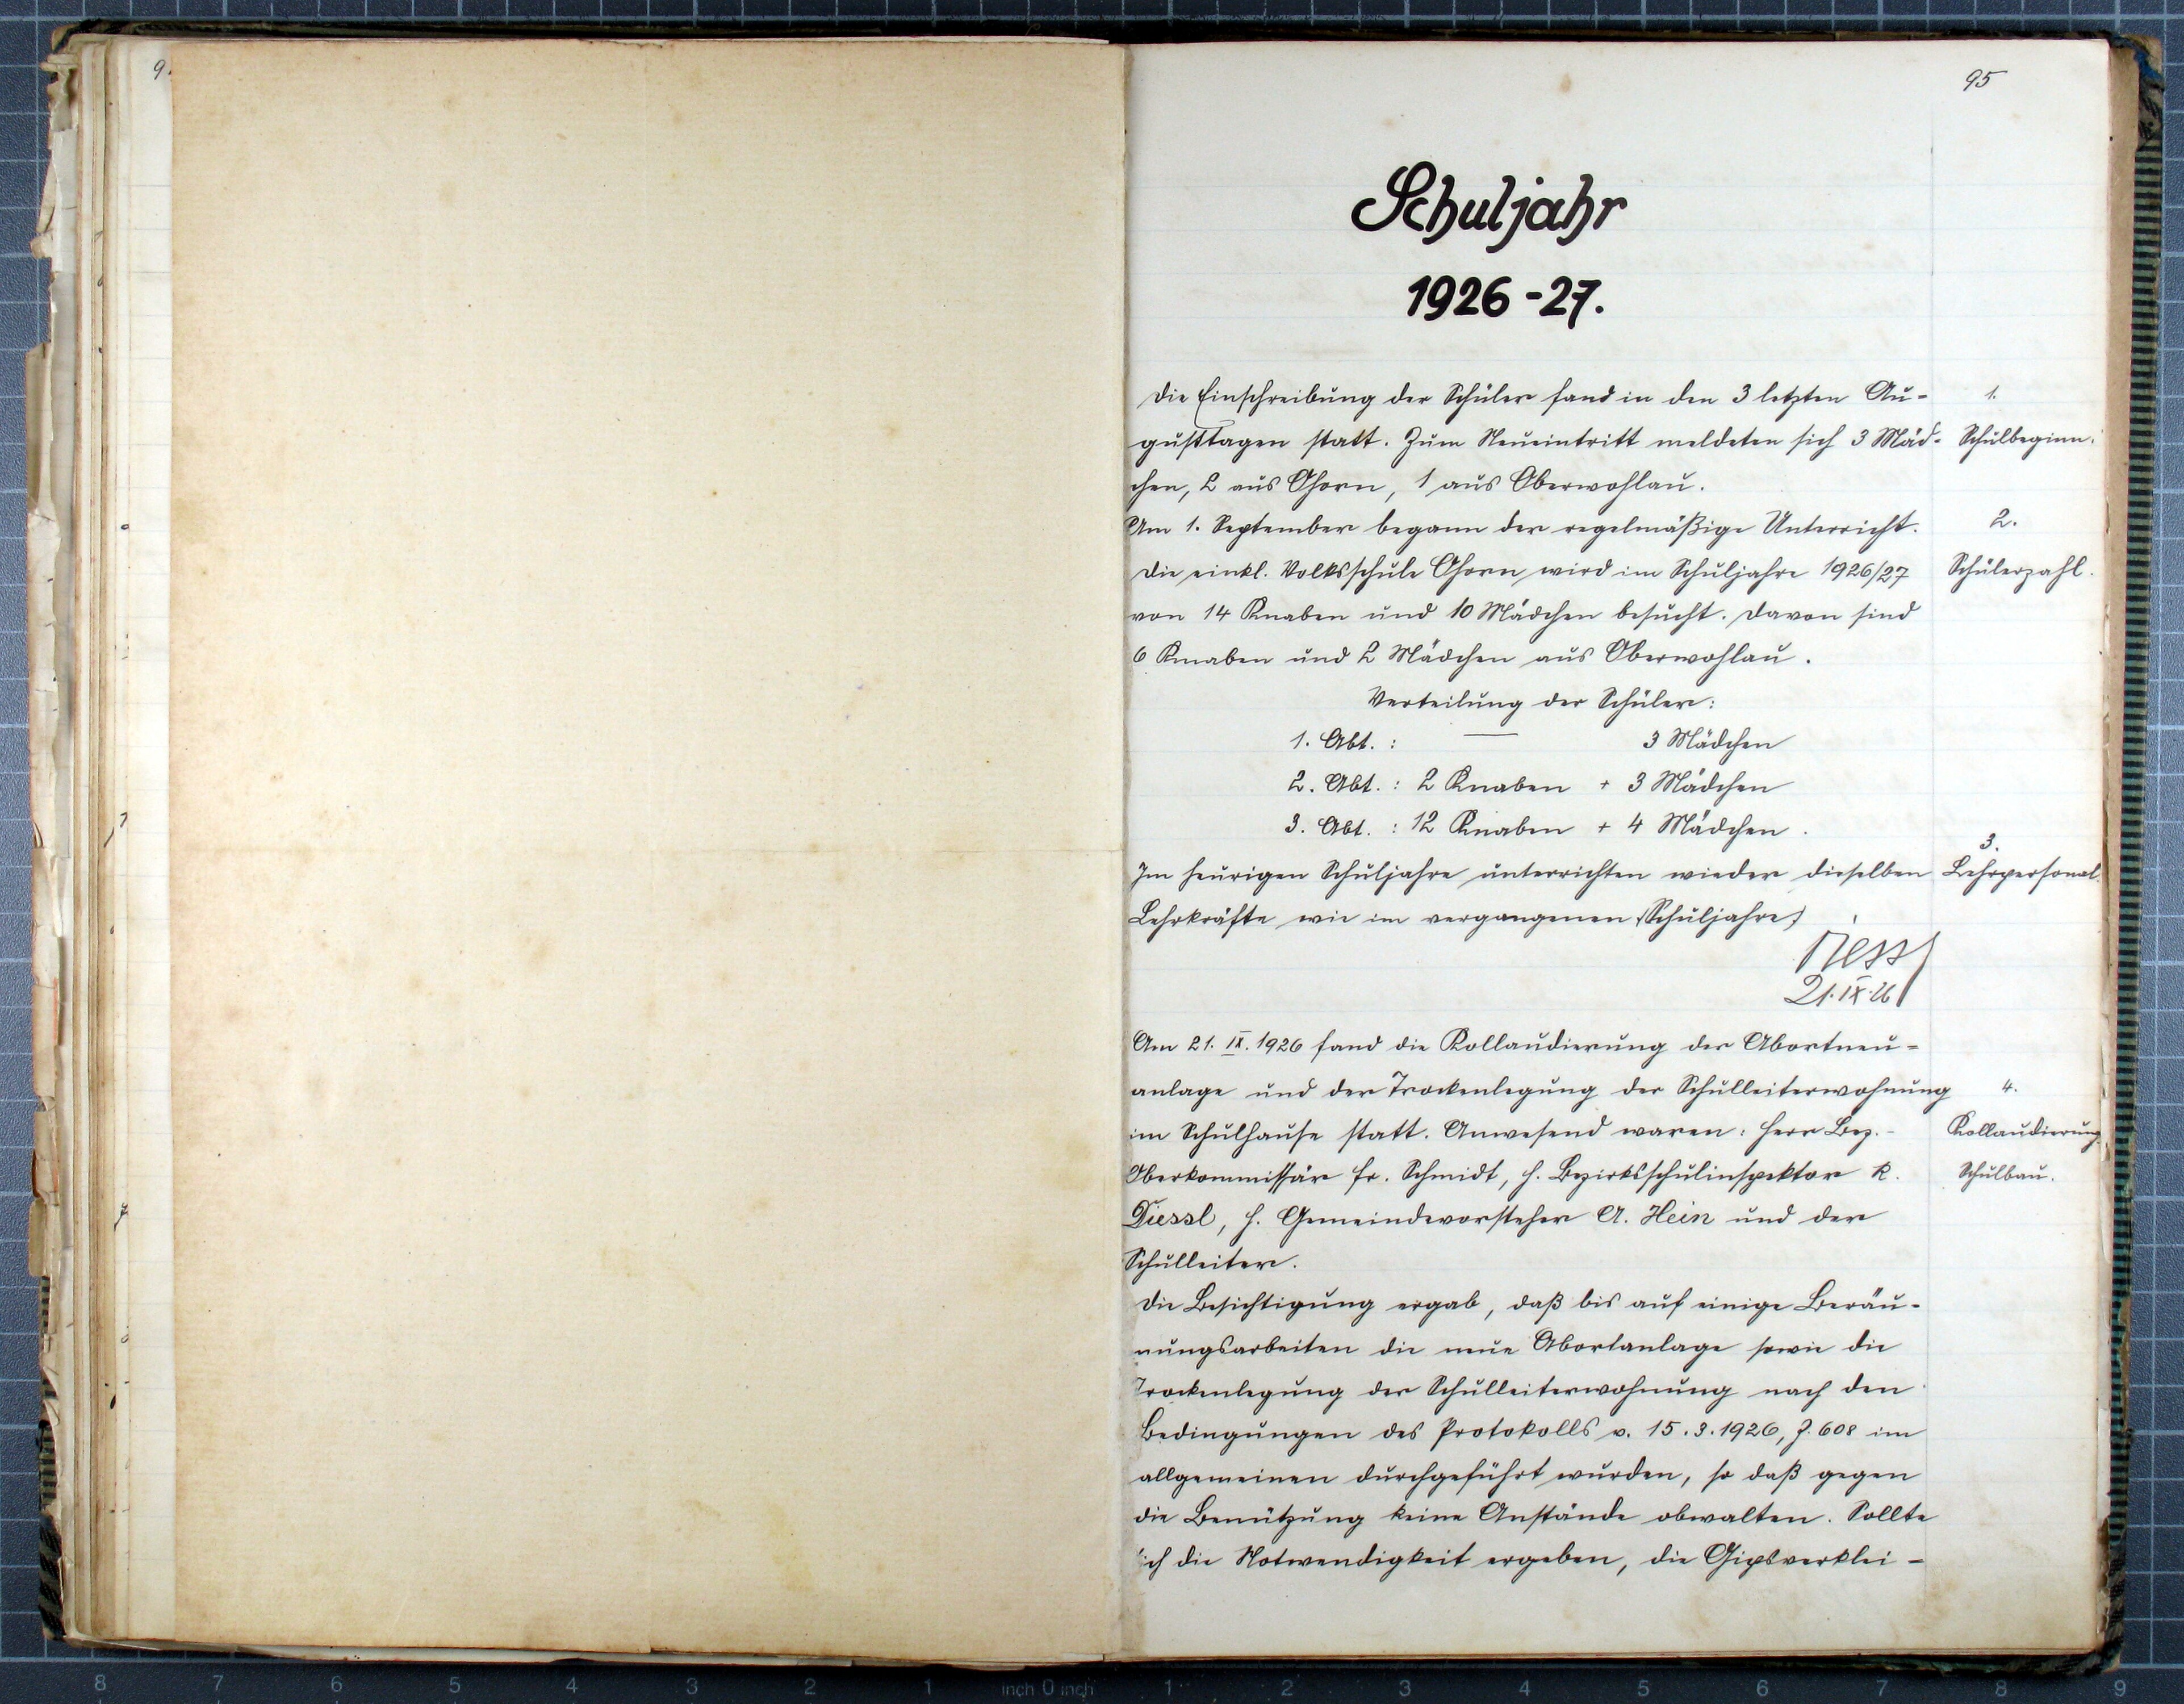 9.
95
Schuljahr
1926-27.
Die Einschreibung der Schüler fand in den 3 letzten Au-
gusttagen statt. Zum Neueintritt meldeten sich 3 Mäd-
chen, 2 aus Ohorn, 1 aus Oberwohlau.
Am 1. September begann der regelmäßige Unterricht.
Die einkl. Volksschule Ohorn wird im Schuljahre 1926/27
von 14 Knaben und 10 Mädchen besucht. Davon sind
6 Knaben und 2 Mädchen aus Oberwohlau.
Verteilung der Schüler:
1. Abt.: — 3 Mädchen
2. Abt.: 2 Knaben + 3 Mädchen
3. Abt.: 12 Knaben + 4 Mädchen.
Im heurigen Schuljahre unterrichten wieder dieselben
Lehrkräfte wie im vergangenen Schuljahre
21.IX.26
Am 21. IX. 1926 fand die Kollaudierung der Abortneu-
anlage und der Trockenlegung der Schulleiterwohnung
im Schulhause statt. Anwesend waren: Herr Bez.-
Oberkommissär Fr. Schmidt, H. Bezirksschulinspektor R.
Diessl, H. Gemeindevorsteher A. Hein und der
Schulleiter.
Die Besichtigung ergab, daß bis auf einige Beräu-
mungsarbeiten die neue Abortanlage sowie die
Trockenlegung der Schulleiterwohnung nach den
Bedingungen des Protokolls v. 15.3.1926, Z. 608 im
allgemeinen durchgeführt wurden, so daß gegen
die Benützung keine Anstände obwalten. Sollte
sich die Notwendigkeit ergeben, die Gipsverklei-
1.
Schulbeginn.
2.
Schülerzahl.
3.
Lehrpersonal.
4.
Kollaudierung
Schulbau.